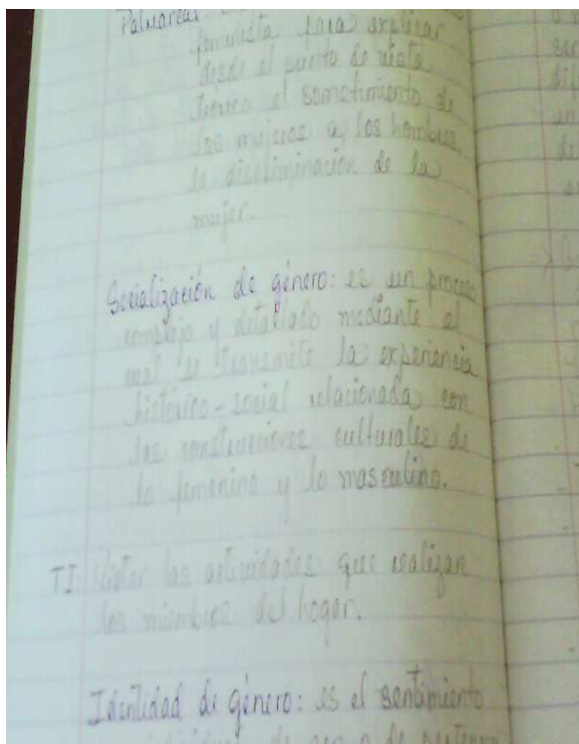 Patriarcal
feminista para explicar
desde el punto de vista
teórico el sometimiento de
las mujeres a los hombres
la discriminación de la
mujer.
Socialización de género: es un proceso
complejo y detallado mediante el
cual se transmite la experiencia
histórico-social relacionada con
las construcciones culturales de
lo femenino y lo masculino.
TI: Listar las actividades que realizan
los miembros del hogar.
Identidad de género: es el sentimiento
de ser o de